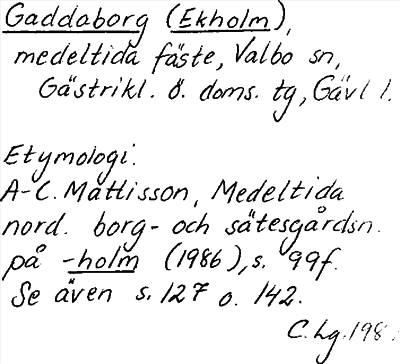 Gaddaborg (Ekholm),
medeltida fäste, Valbo sn,
Gästrikl. ö. doms. tg, Gävl l.
Etymologi.
A-C. Mattisson, Medeltida
nord. borg- och sätesgårdsn.
på -holm (1986), s. 99f.
Se även s. 127 o. 142.
C. Lg. 198